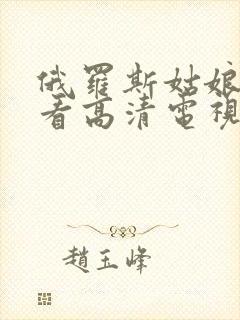 俄羅斯姑娘
看高清電視
趙玉峰